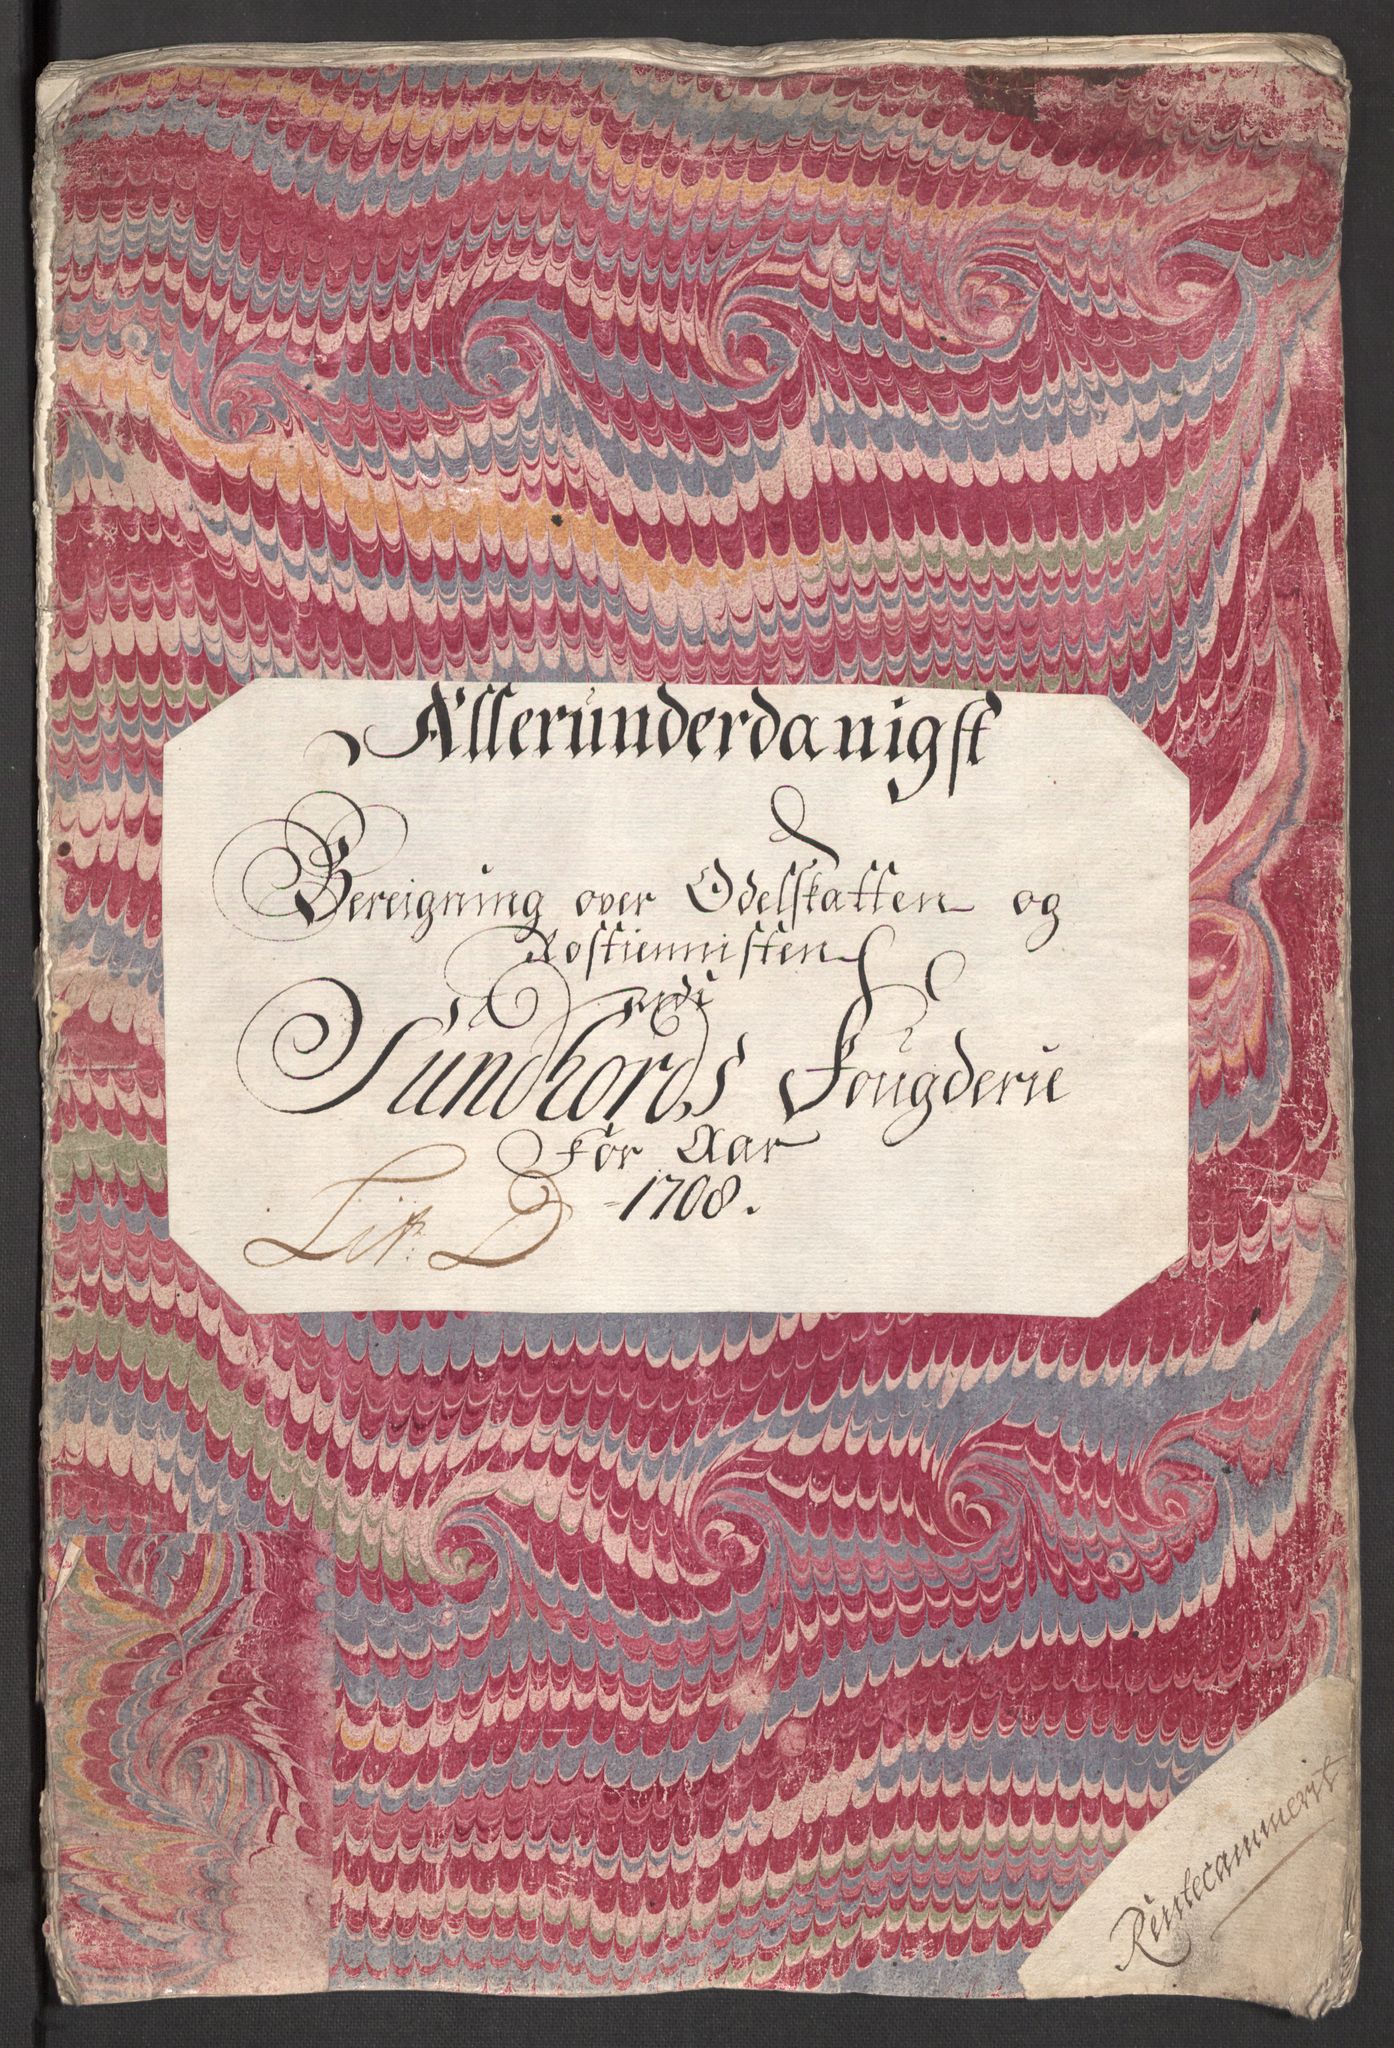 Allerunderdanigst
Bereigning over Odelskatten og
Rostiennisten
udi
Sundhords Fougderie
For Aar
1708.
Lit: D
Rentecammerit